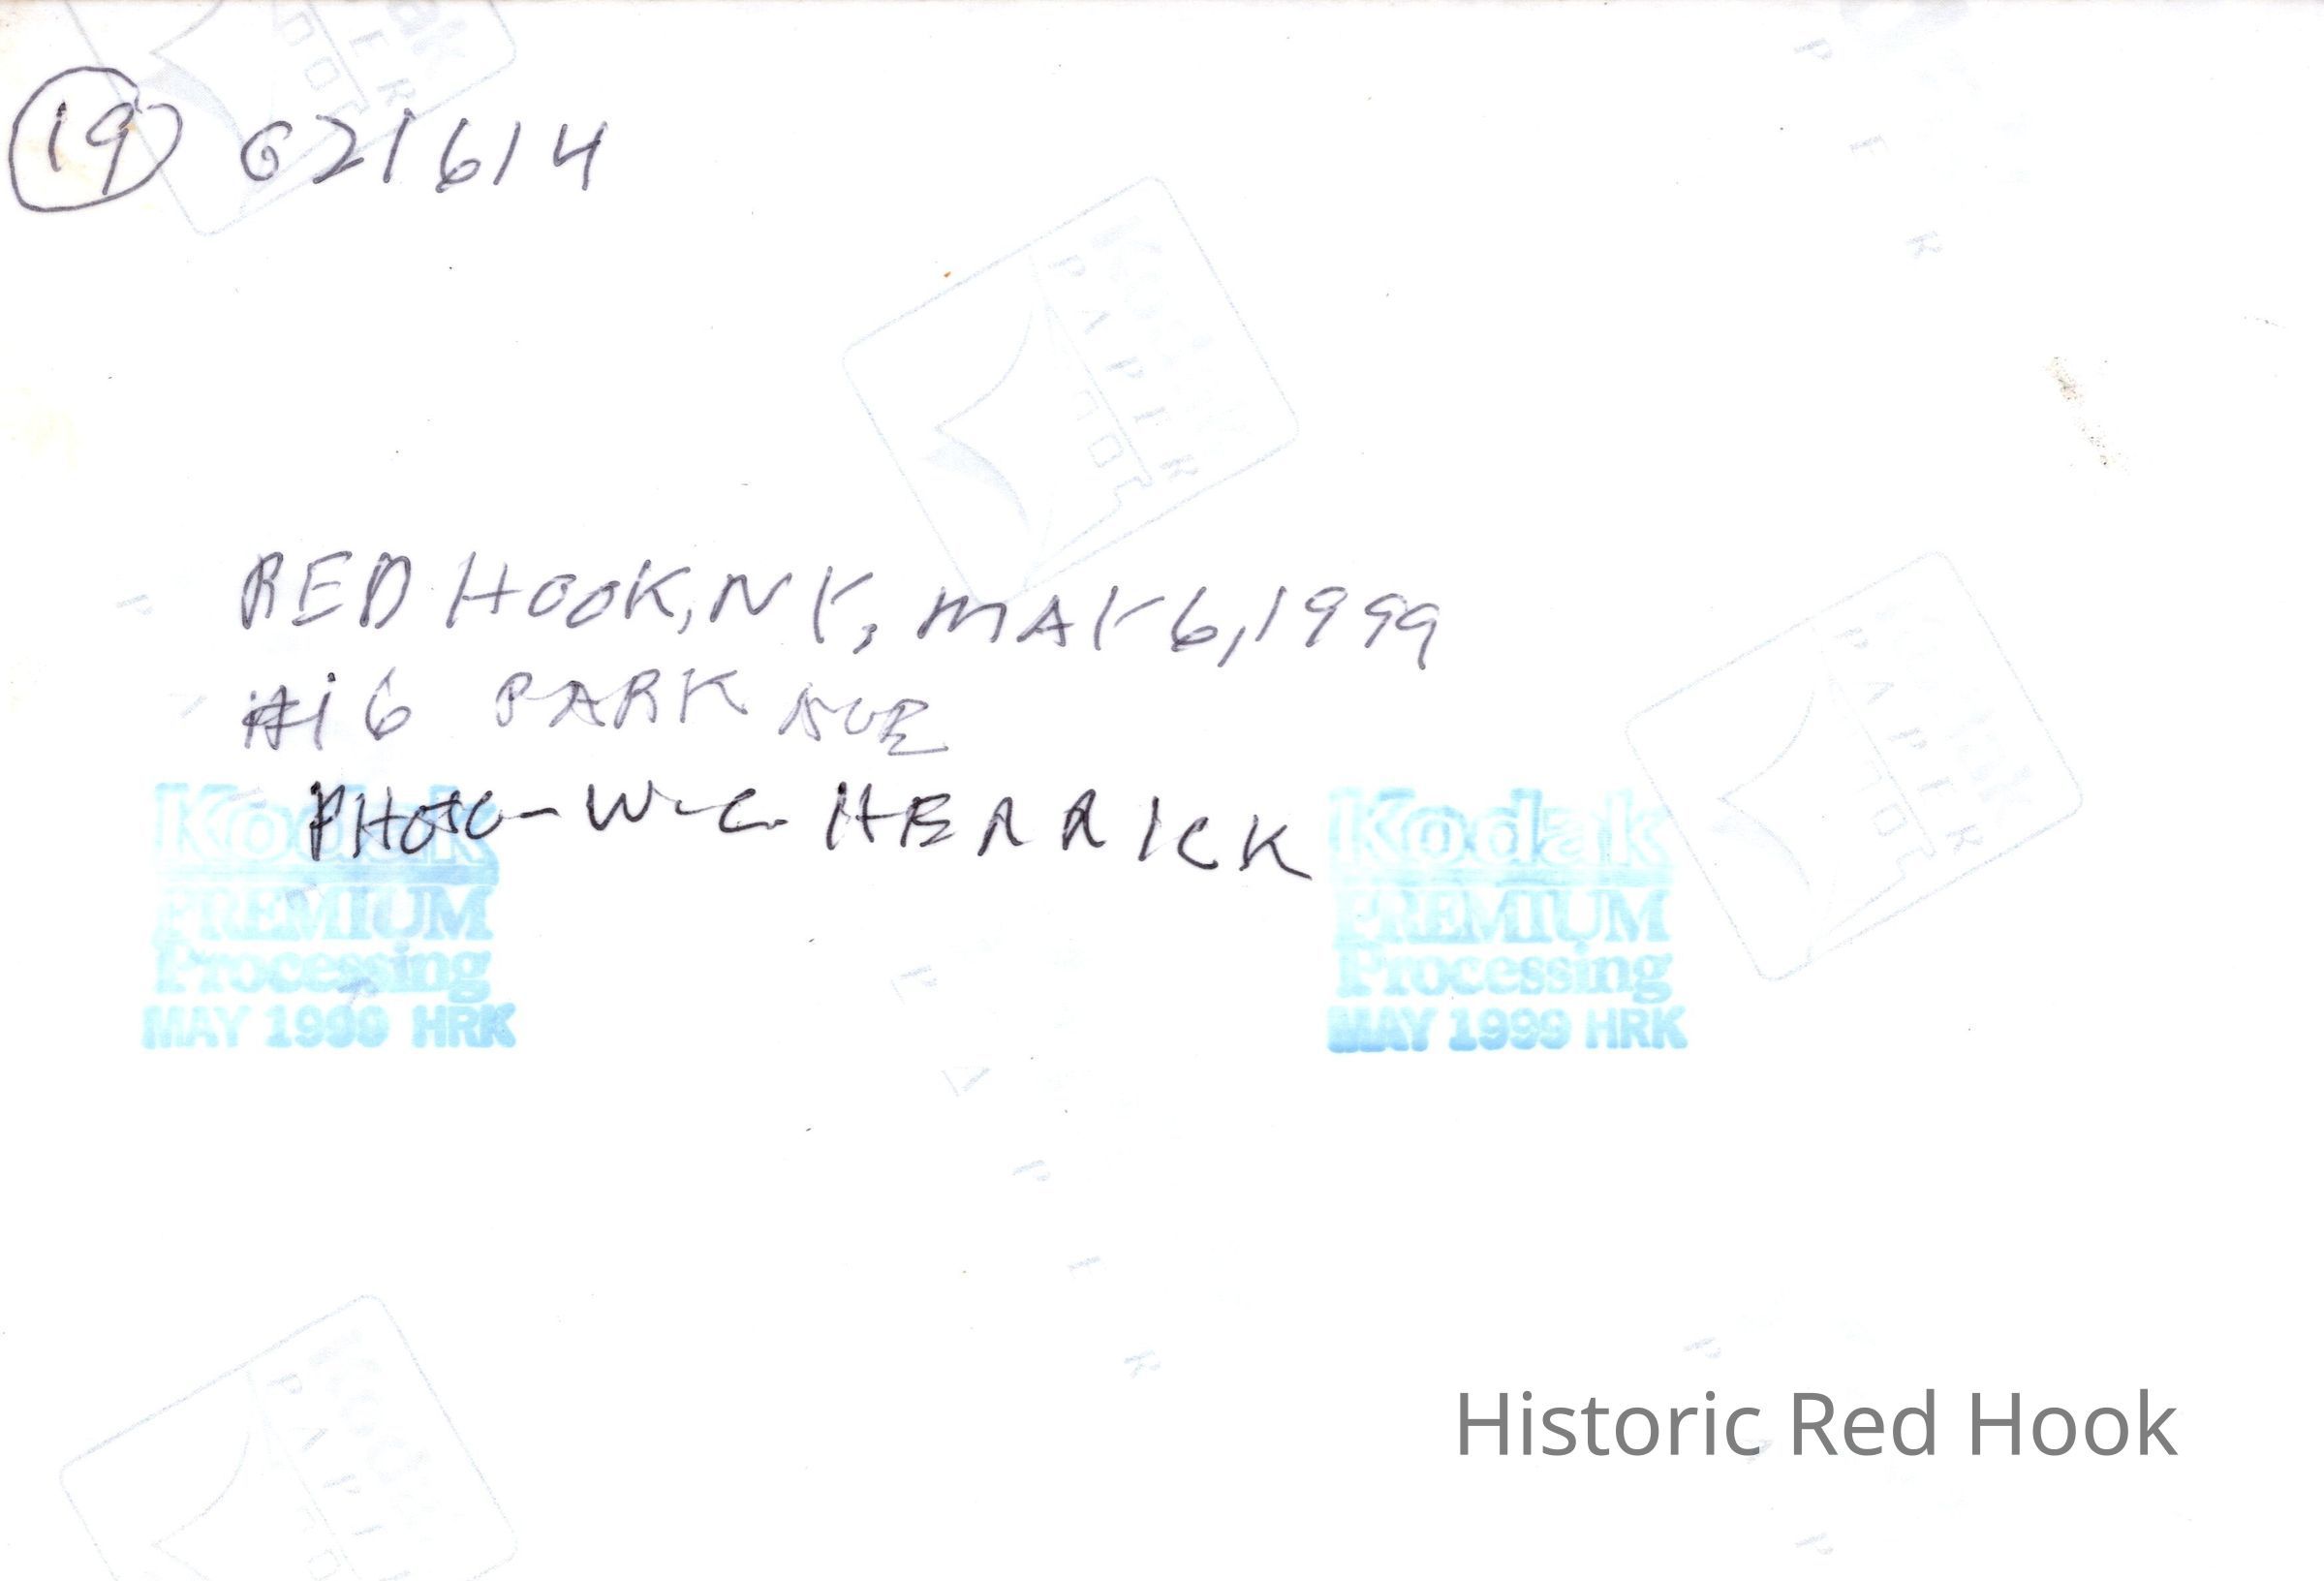 19 621614
RED HOOK, NY, MAY 6, 1999
#16 PARK AVE
PHOTO - W-C HERRICK
Kodak
PREMIUM
Processing
MAY 1999 HRK
Kodak
PREMIUM
Processing
MAY 1999 HRK
Kodak
PAPER
Kodak
PAPER
Kodak
PAPER
Historic Red Hook